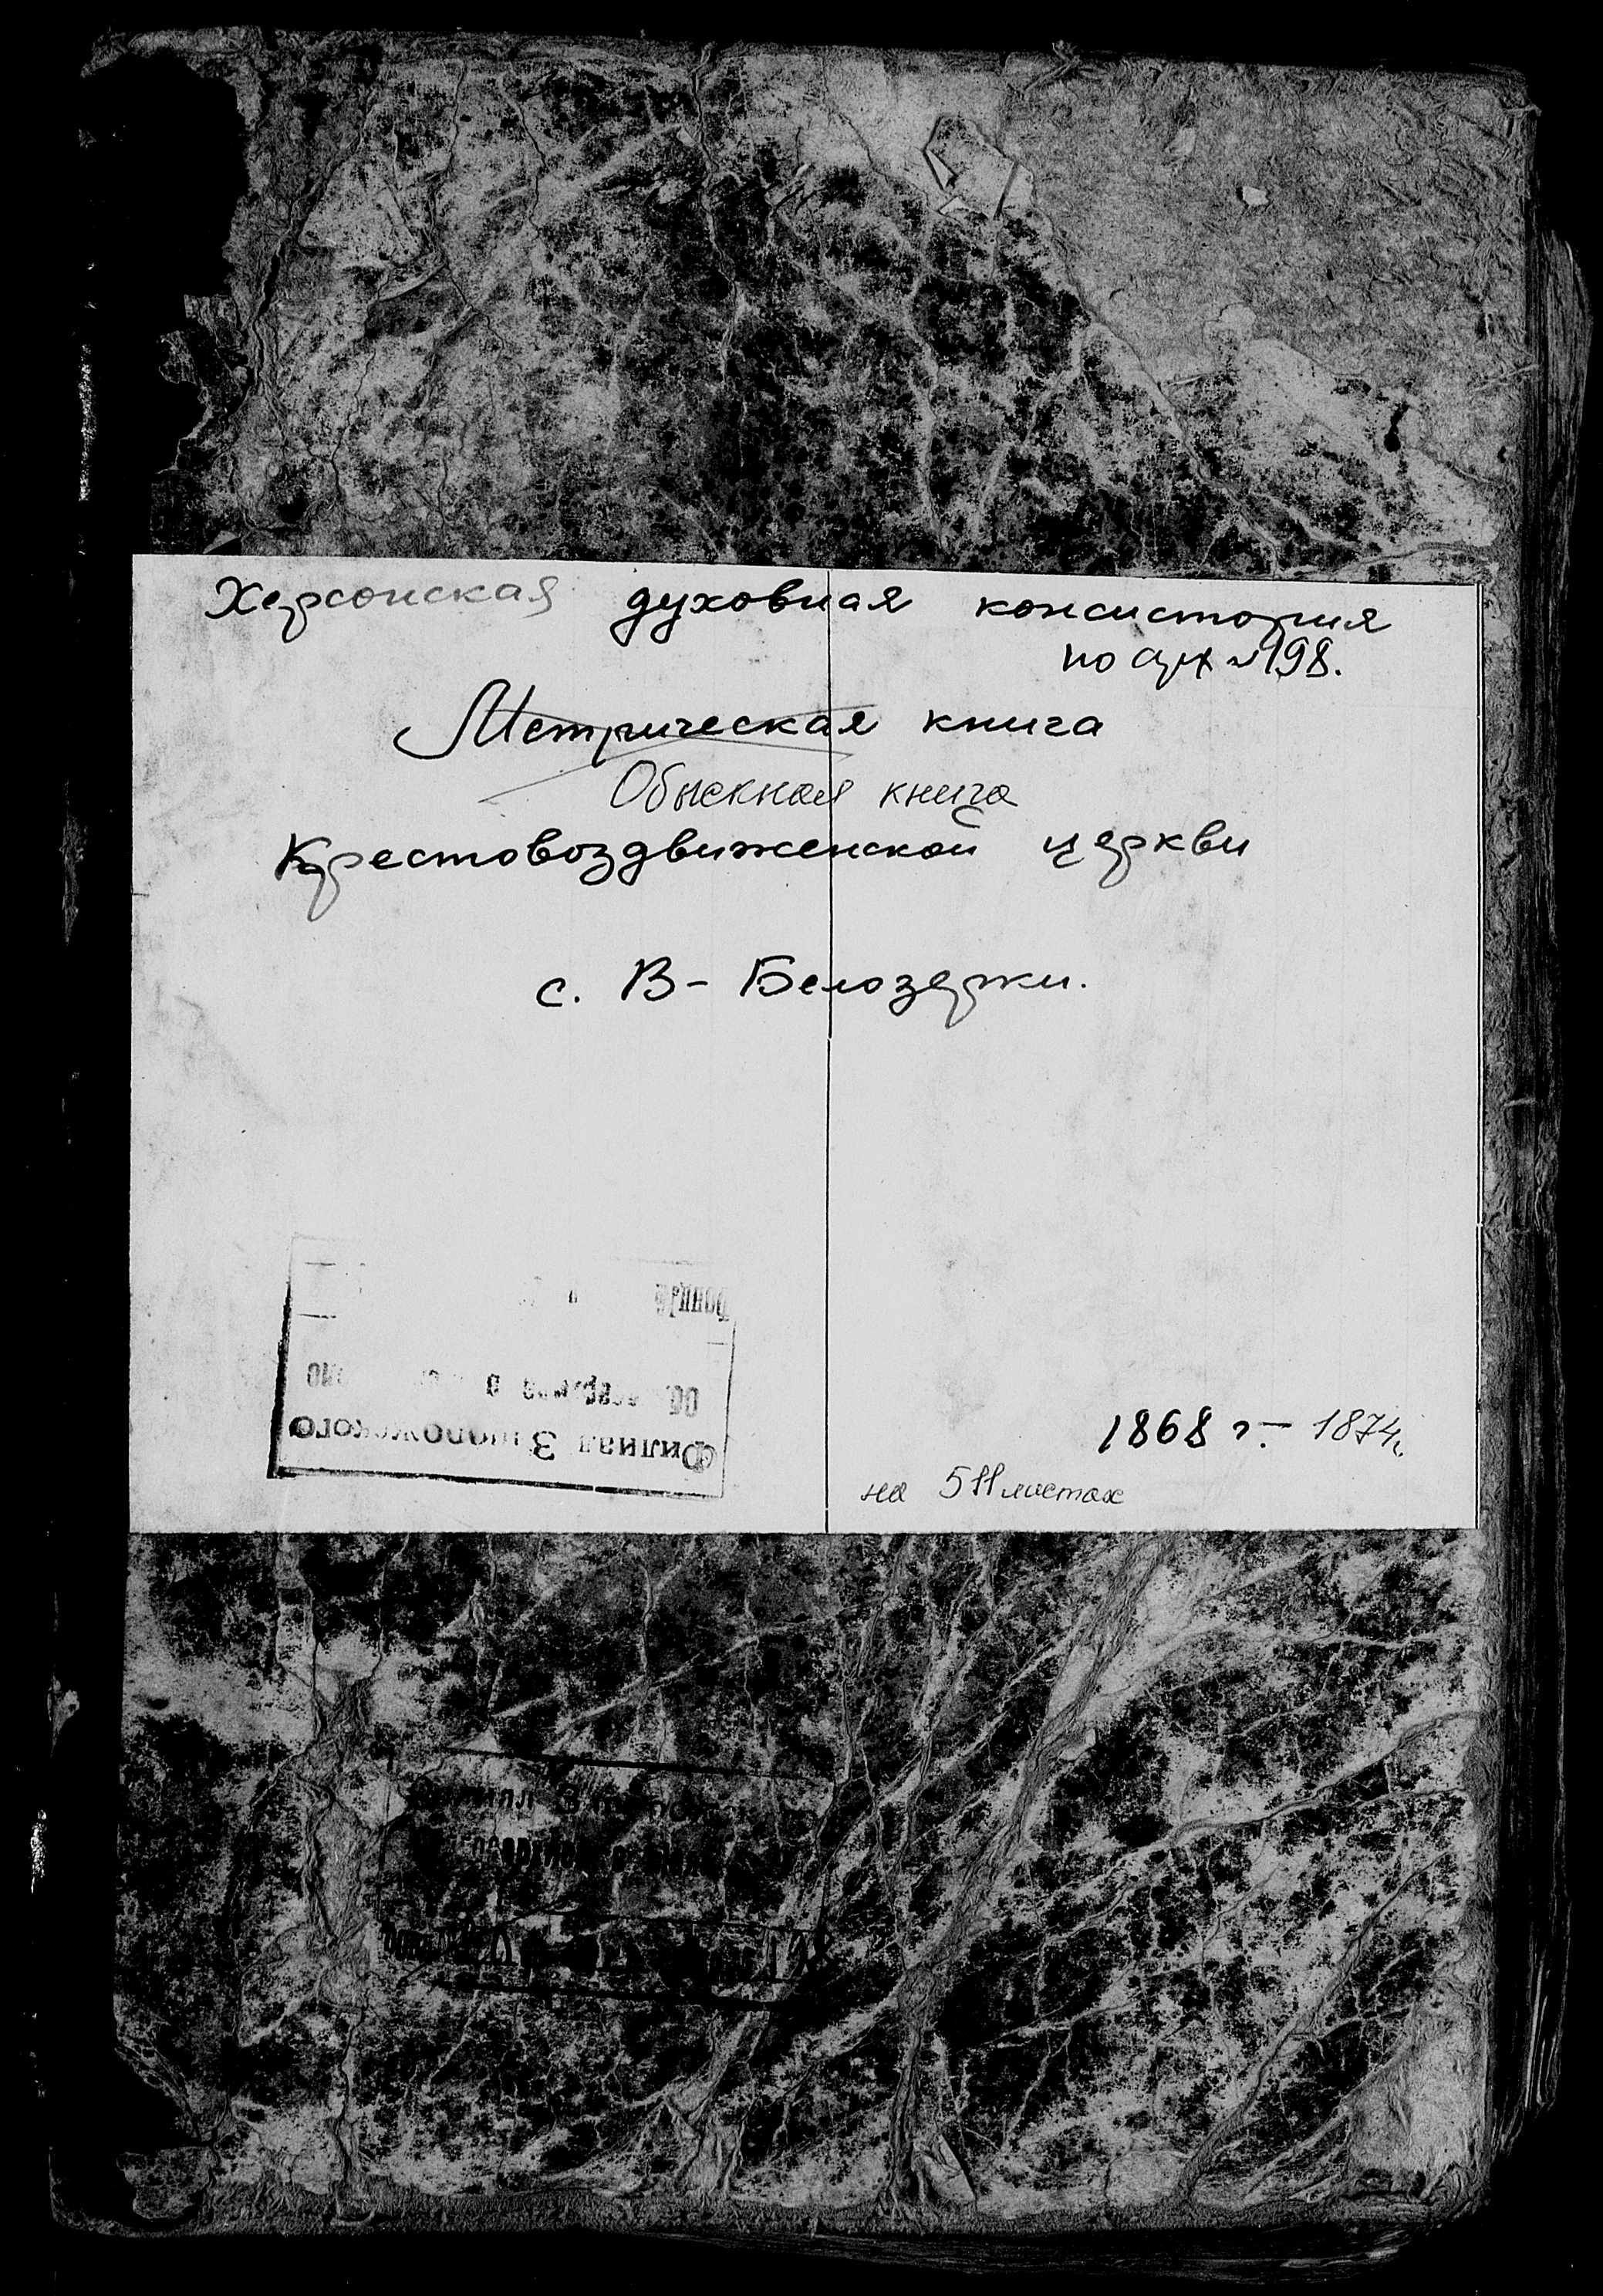 Херсонская духовная консистория
по арх № 198.
Метрическая книга
Обыскная книга
Крестовоздвиженской церкви
с. В- Белозерки.
1868 г. - 1874 г.
на 511 листах
Филиал Запорожского